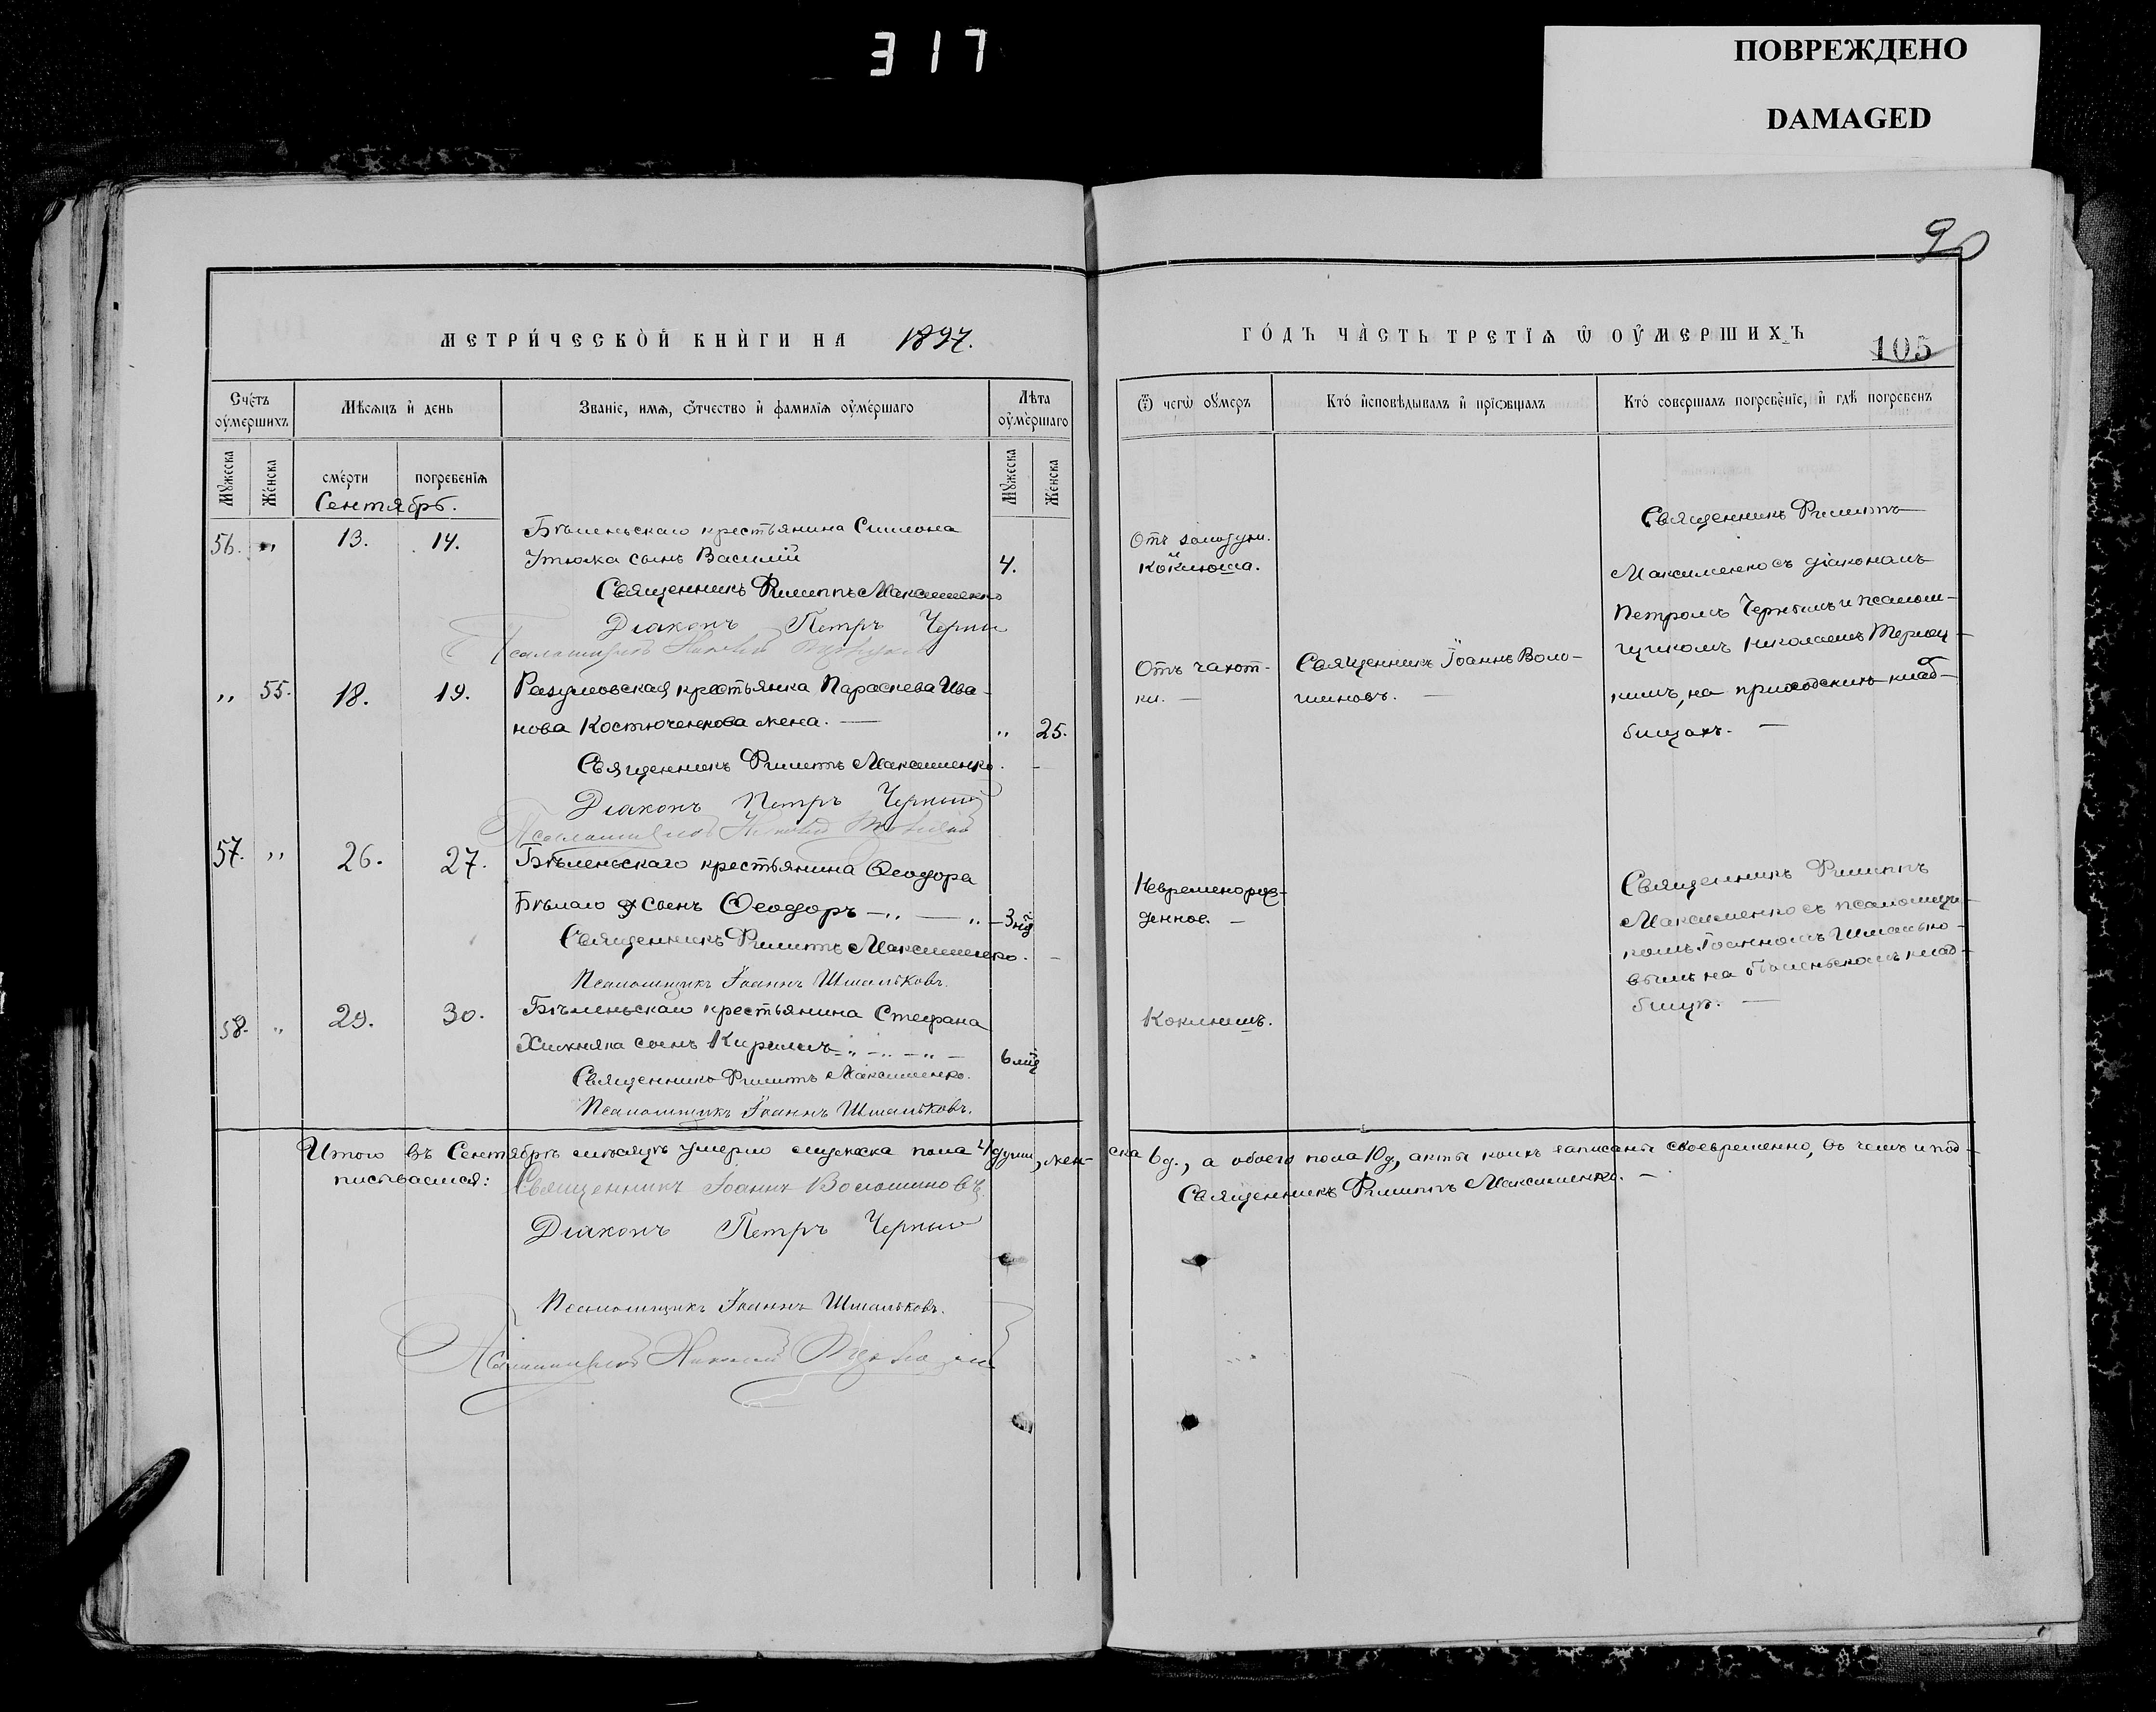 317
ПОВРЕЖДЕНО
DAMAGED
90
МЕТРИЧЕСКОЙ КНИГИ НА 1897.
ГОДЪ ЧАСТЬ ТРЕТІЯ Ѡ ОУМЕРШИХЪ
105
Счетъ оумершихъ
Мѣсяцъ и день
Званіе, имя, отчество и фамилія оумершаго
Лѣта оумершаго
Ѿ чегѡ оумеръ
Кто исповѣдывалъ и пріобщалъ
Кто совершалъ погребеніе, и гдѣ погребенъ
Мужеска
Женска
смерти
погребенія
Мужеска
Женска
Сентябрь.
56. " 13. 14.
Бѣленьскаго крестьянина Симеона
Утюжа сынъ Василій
4.
Священникъ Филиппъ Максименко
Діаконъ Петръ Черный
Псаломщикъ Николай
Отъ
коклюша.
Священникъ Филиппъ
Максименко съ діакономъ
Петромъ Чернымъ и псалом-
щикомъ Николаемъ
кимъ, на приходскихъ клад-
бищахъ. —
" 55. 18. 19.
Разумовская крестьянка Параскева Ива-
нова Костюченкова жена. —
" 25.
Священникъ Филиппъ Максименко.
Діаконъ Петръ Черный
Псаломщикъ Николай
Отъ чахот-
ки. —
Священникъ Іоаннъ Воло-
шиновъ. —
57. " 26. 27.
Бѣленьскаго крестьянина Ѳеодора
Бѣлаго сынъ Ѳеодоръ — " — " —
3 нд
Священникъ Филиппъ Максименко.
Псаломщикъ Іоаннъ Шмальковъ.
Невременорож-
денное. —
Священникъ Филиппъ
Максименко съ псаломщи-
комъ Іоанномъ Шмалько-
вымъ на бѣленьскомъ клад-
бищѣ. —
58. " 29. 30.
Бѣленьскаго крестьянина Стефана
Хижняка сынъ Кириллъ — " — " — " —
6 мц
Священникъ Филиппъ Максименко.
Псаломщикъ Іоаннъ Шмальковъ.
Коклюшъ.
Итого въ Сентябрѣ мѣсяцѣ умерло мужеска пола 4 души, жен-
ска 6 д., а обоего пола 10 д, акты коихъ записаны своевременно, въ чемъ и под-
писываемся: Священникъ Іоаннъ Волошиновъ
Священникъ Филиппъ Максименко. —
Діаконъ Петръ Черный
Псаломщикъ Іоаннъ Шмальковъ.
Псаломщикъ Николай